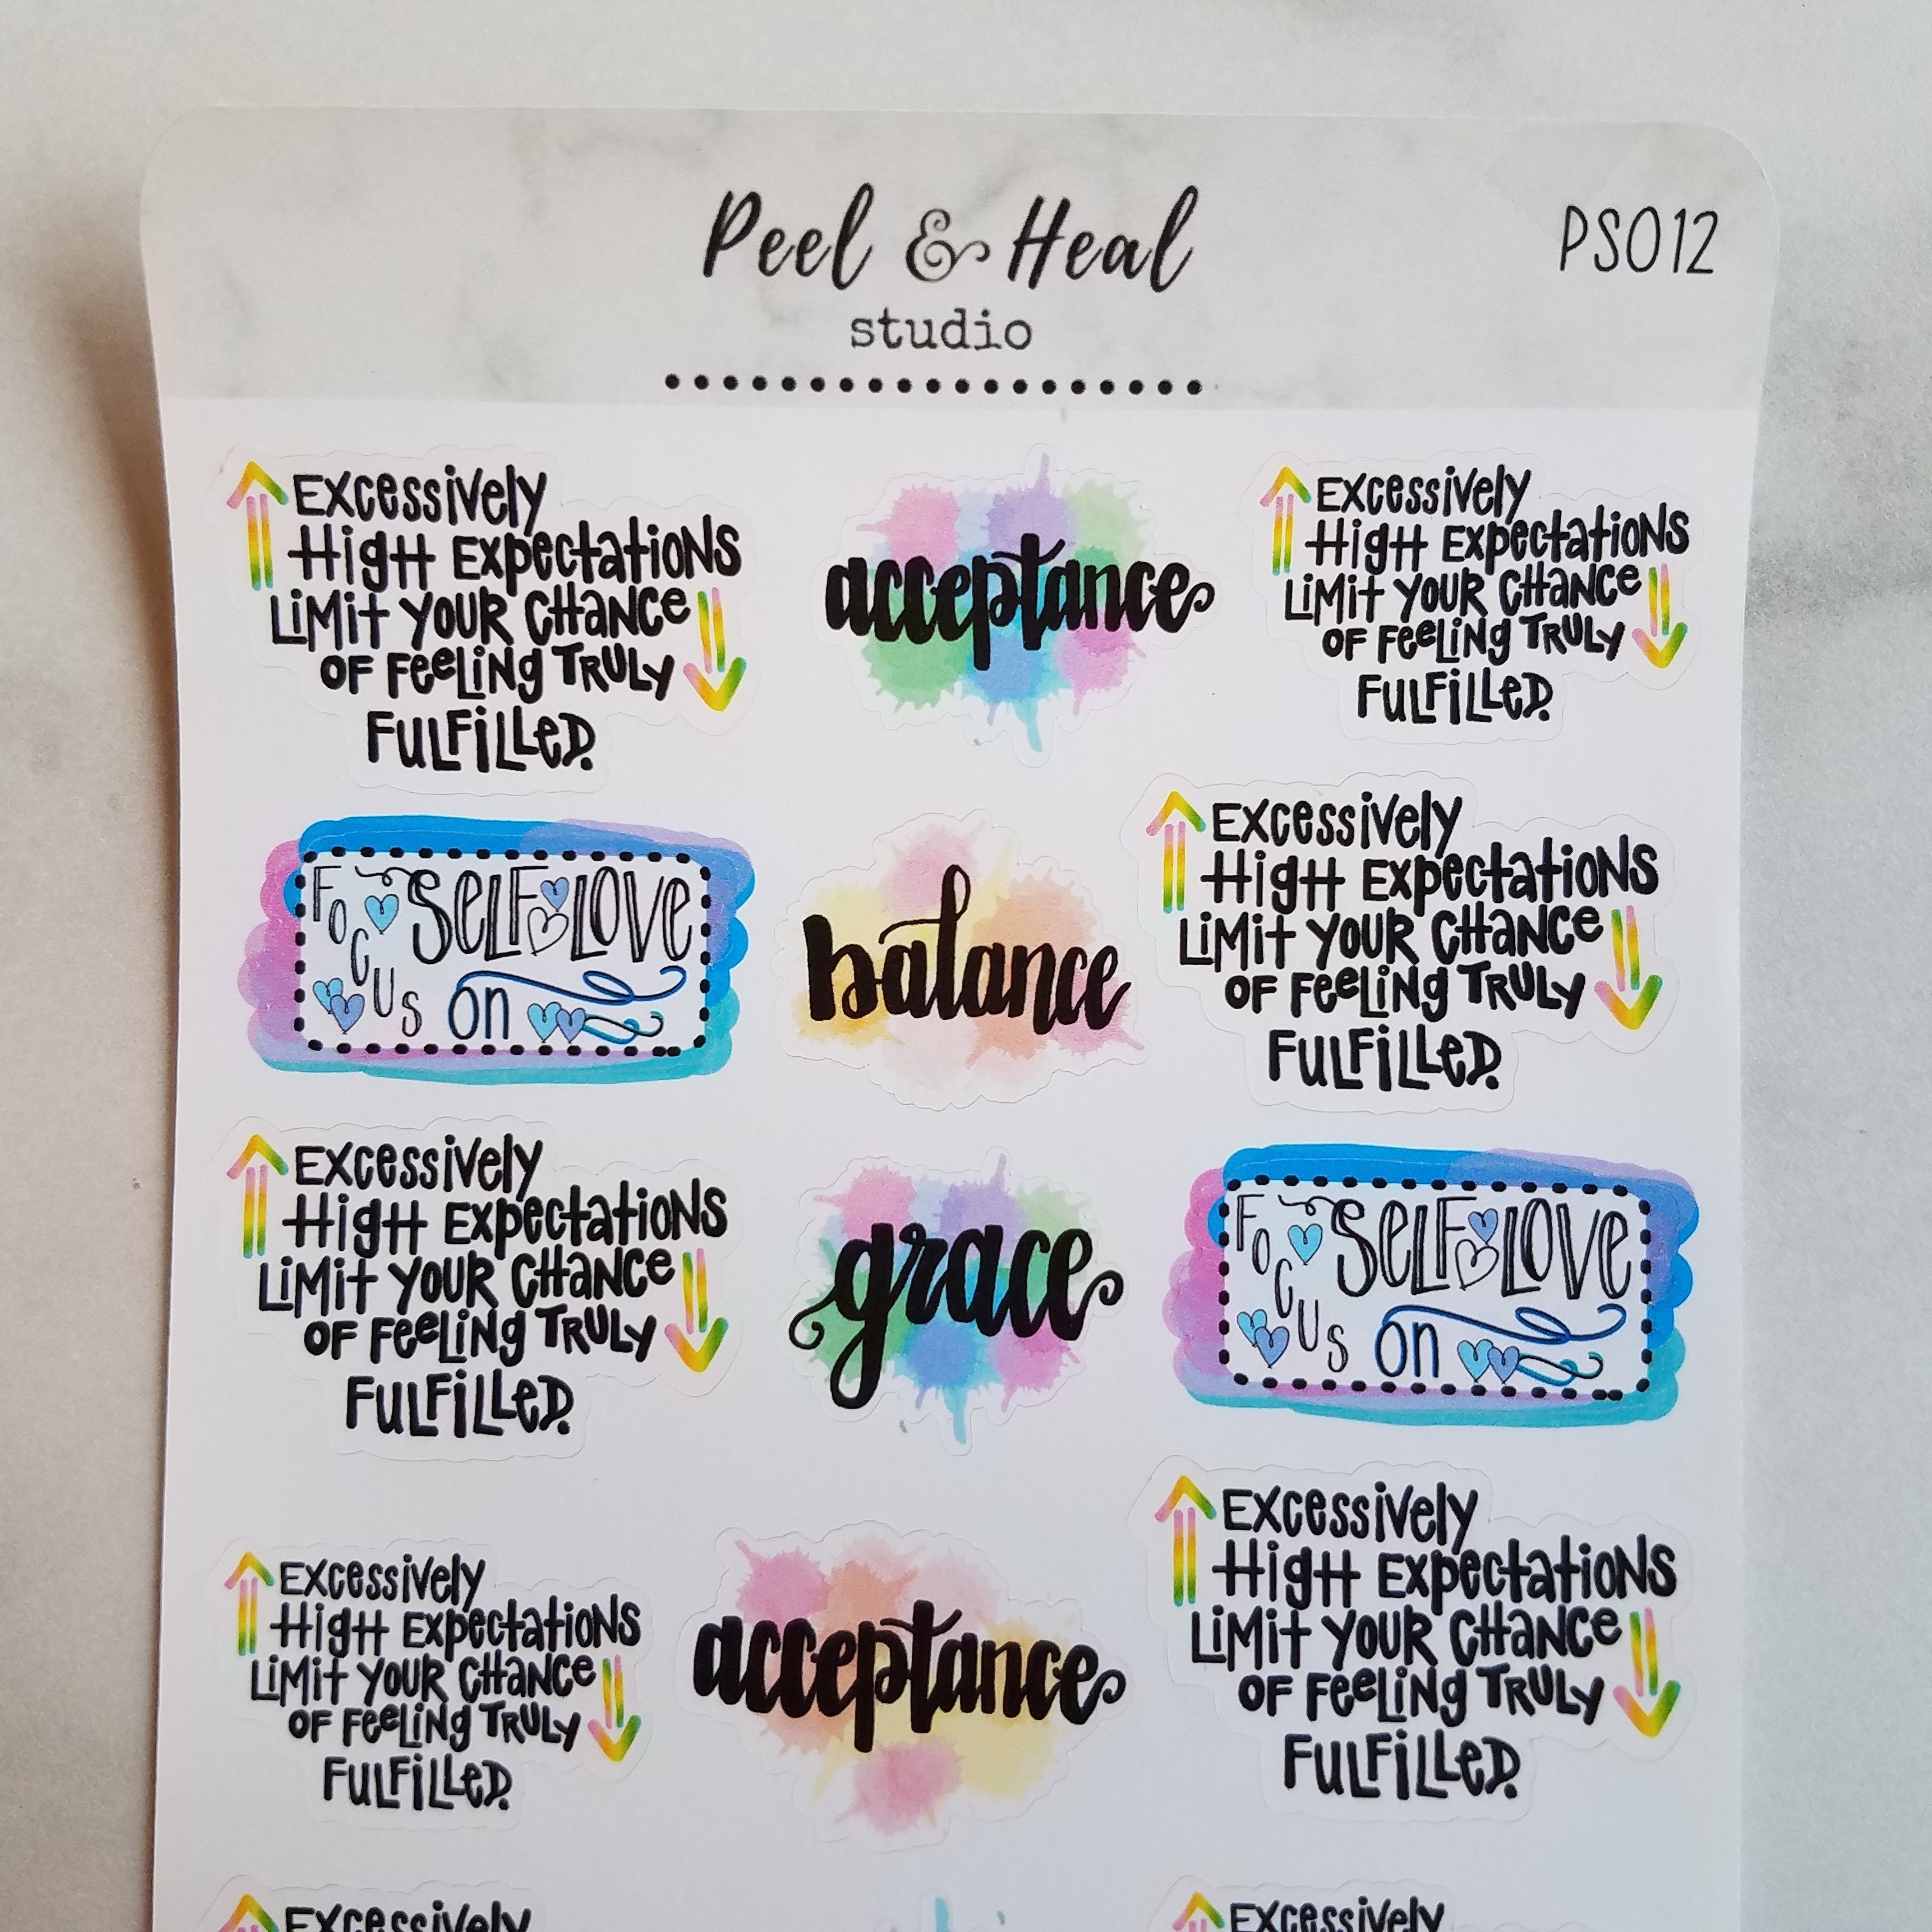 Peel & Heal
studio
PS012
Excessively
High Expectations
Limit Your Chance
of Feeling Truly
Fulfilled.
acceptance
Excessively
High Expectations
Limit Your Chance
of Feeling Truly
Fulfilled.
Focus on Self Love
balance
Excessively
High Expectations
Limit Your Chance
of Feeling Truly
Fulfilled.
Excessively
High Expectations
Limit Your Chance
of Feeling Truly
Fulfilled.
grace
Focus on Self Love
Excessively
High Expectations
Limit Your Chance
of Feeling Truly
Fulfilled.
acceptance
Excessively
High Expectations
Limit Your Chance
of Feeling Truly
Fulfilled.
Excessively
Excessively